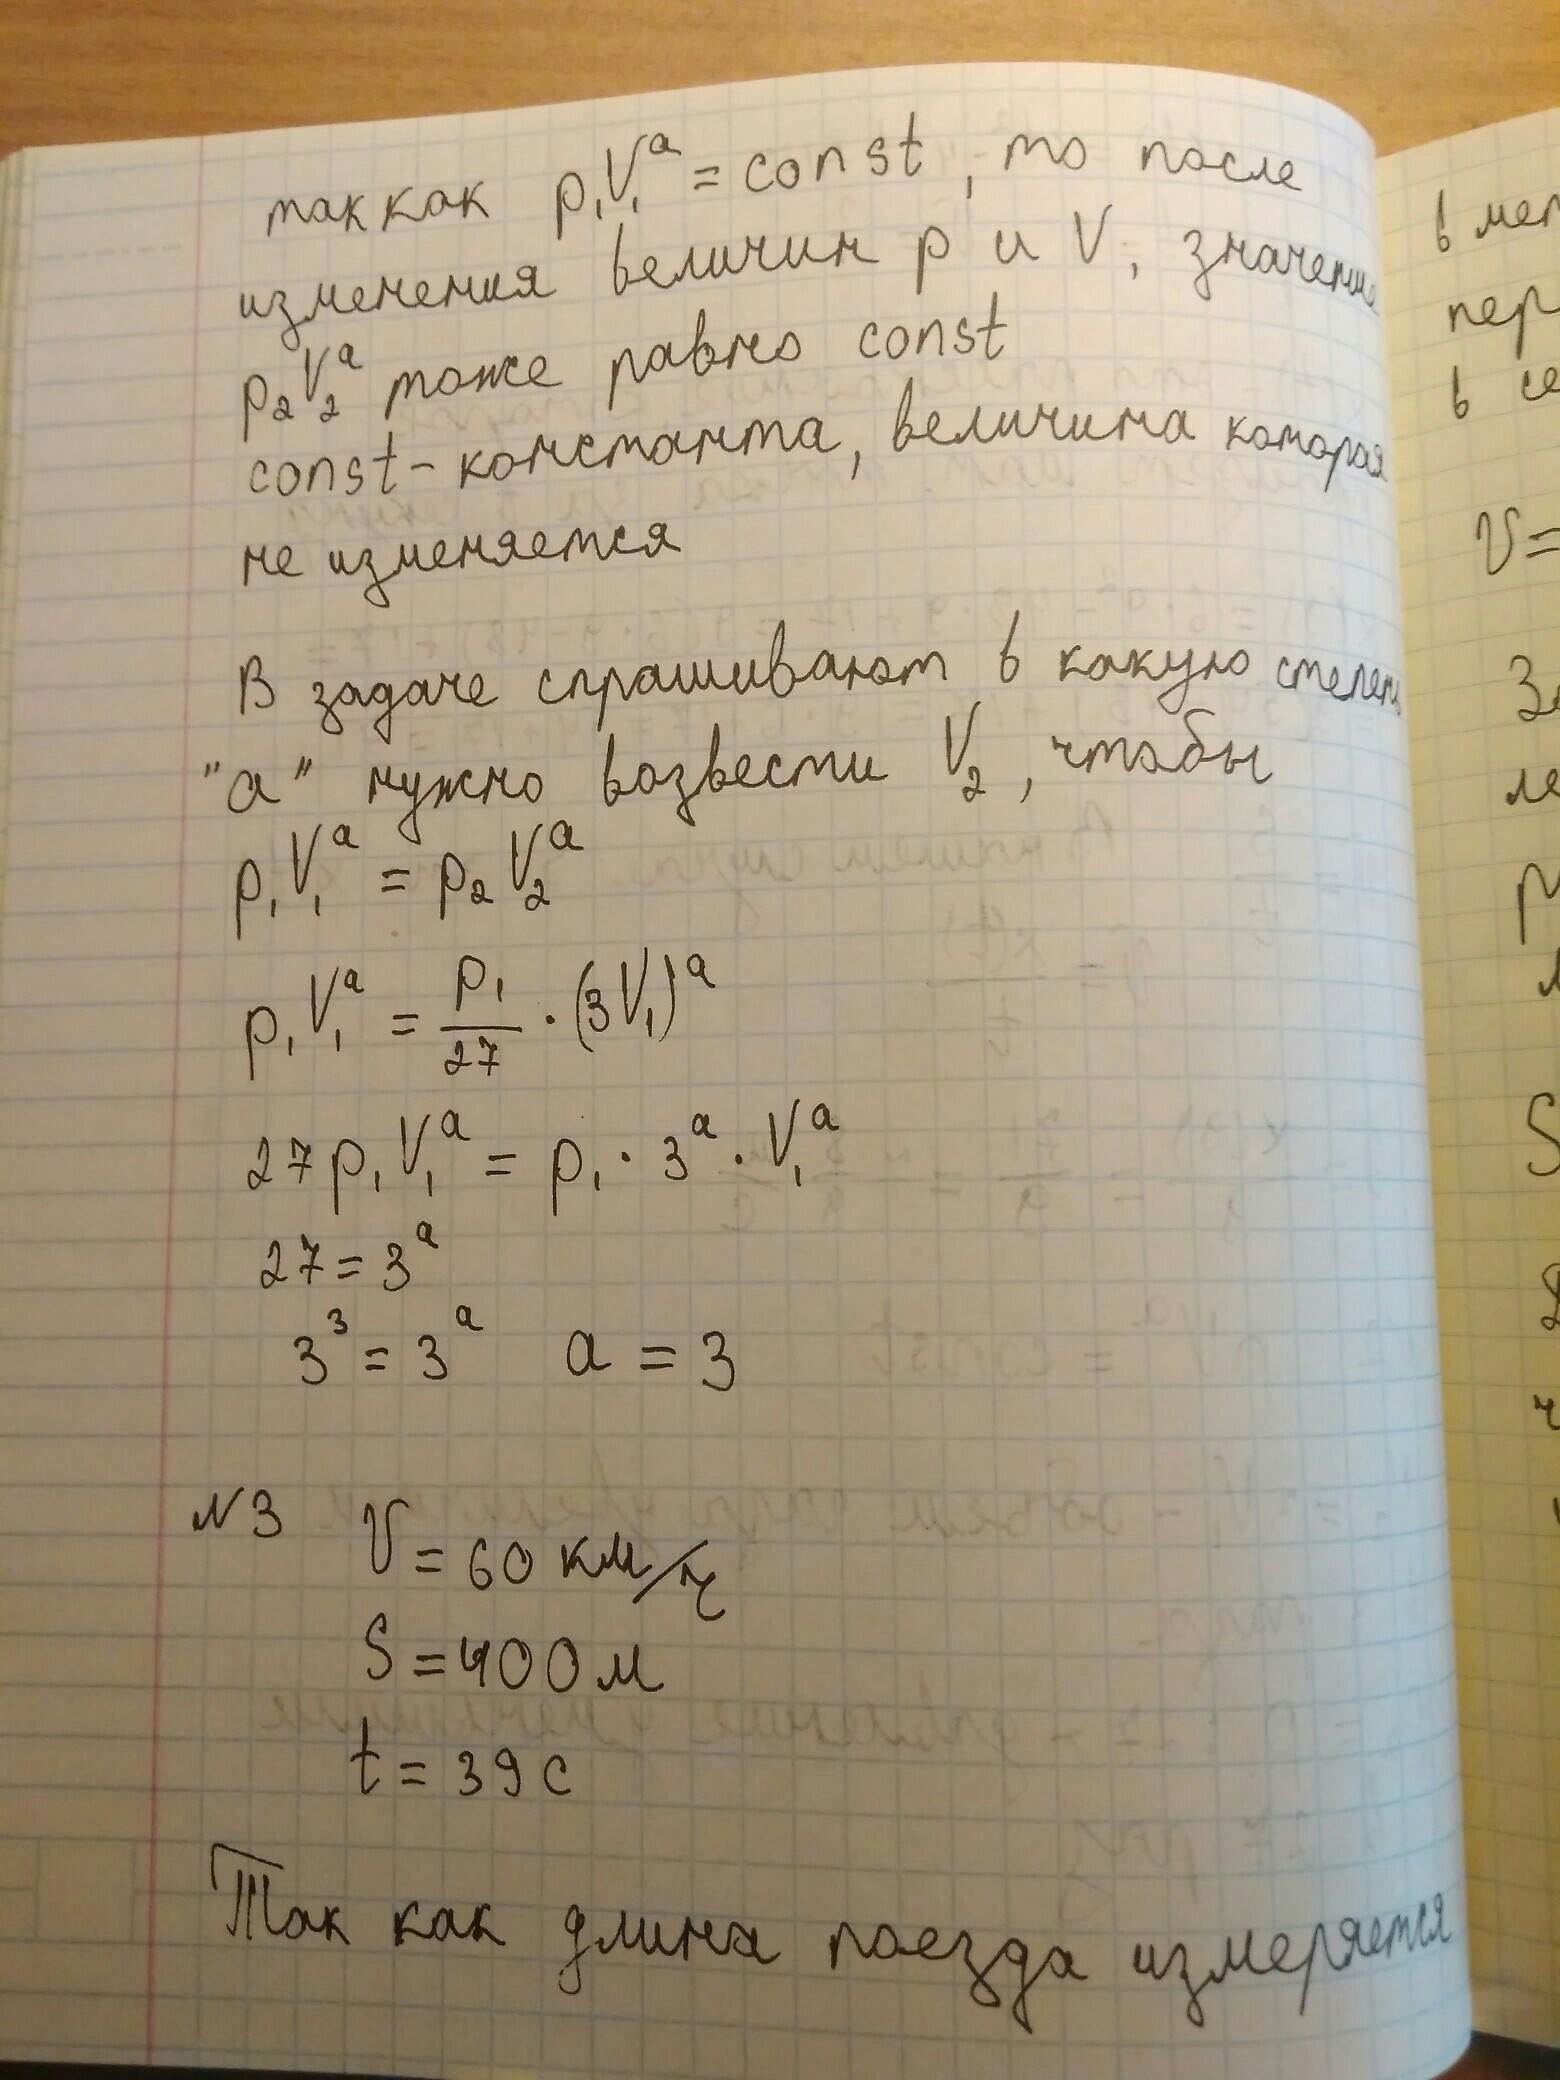 так как p₁V₁ᵃ = const, то после
изменения величин p и V, значение
p₂V₂ᵃ тоже равно const
const - константа, величина которая
не изменяется
В задаче спрашивают в какую степень
"a" нужно возвести V₂, чтобы
p₁V₁ᵃ = p₂V₂ᵃ
p₁V₁ᵃ = p₁/27 · (3V₁)ᵃ
27p₁V₁ᵃ = p₁ · 3ᵃ · V₁ᵃ
27 = 3ᵃ
3³ = 3ᵃ a = 3
N3 V = 60 км/ч
S = 400 м
t = 39 с
Так как длина поезда измеряется
в
пер
в се
V =
S